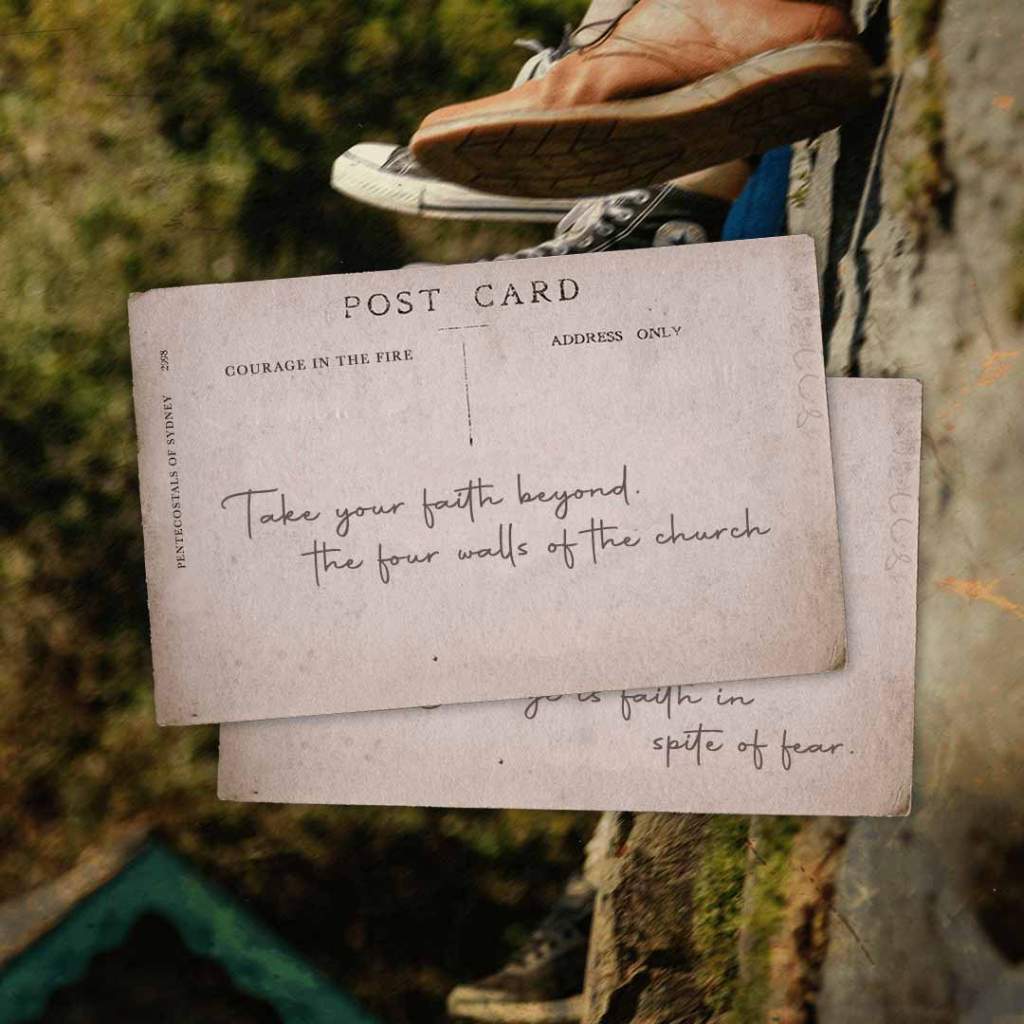 POST CARD
COURAGE IN THE FIRE
ADDRESS ONLY
PENTECOSTALS OF SYDNEY
Take your faith beyond.
the four walls of the church
is faith in
spite of fear.